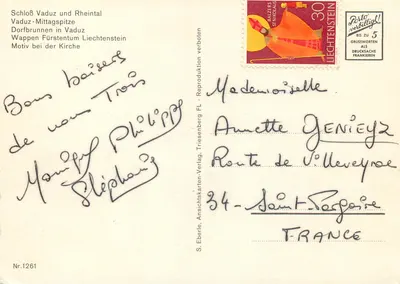 Schloß Vaduz und Rheintal
Vaduz-Mittagspitze
Dorfbrunnen in Vaduz
Wappen Fürstentum Liechtenstein
Motiv bei der Kirche
Bons baisers
de nous Trois
Philippe
Stéphanie
Nr.1261
S. Eberle, Ansichtskarten-Verlag, Triesenberg FL - Reproduktion verboten
30
LIECHTENSTEIN
BIS ZU 5
GRUSSWORTEN
ALS
DRUCKSACHE
FRANKIEREN
Mademoiselle
Annette GENIEYZ
Route de Villeveyrac
34 - Saint-Pargoire
FRANCE